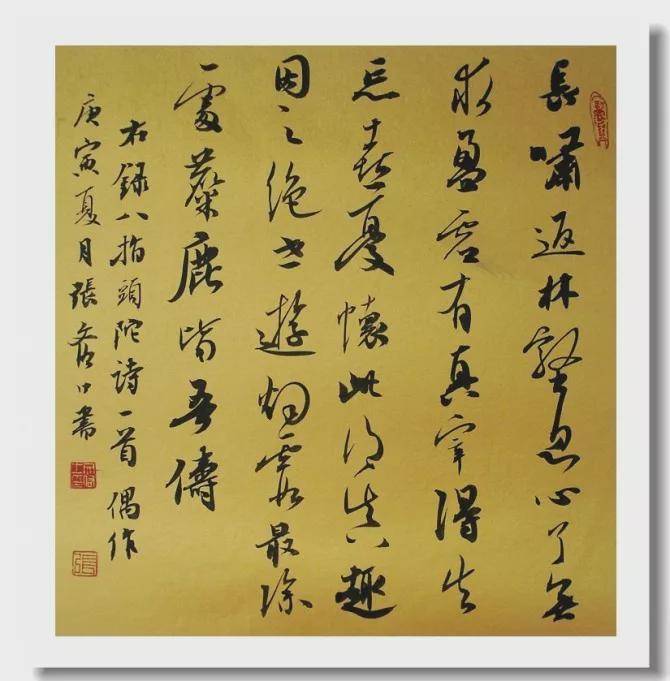 長嘯返林壑息心了無
求盈虛有真宰得失
忘喜憂懷此得真趣
因之絕世遊烟霞最深
處麋鹿皆吾儔
右錄八指頭陀詩一首偶作
庚寅夏月張書